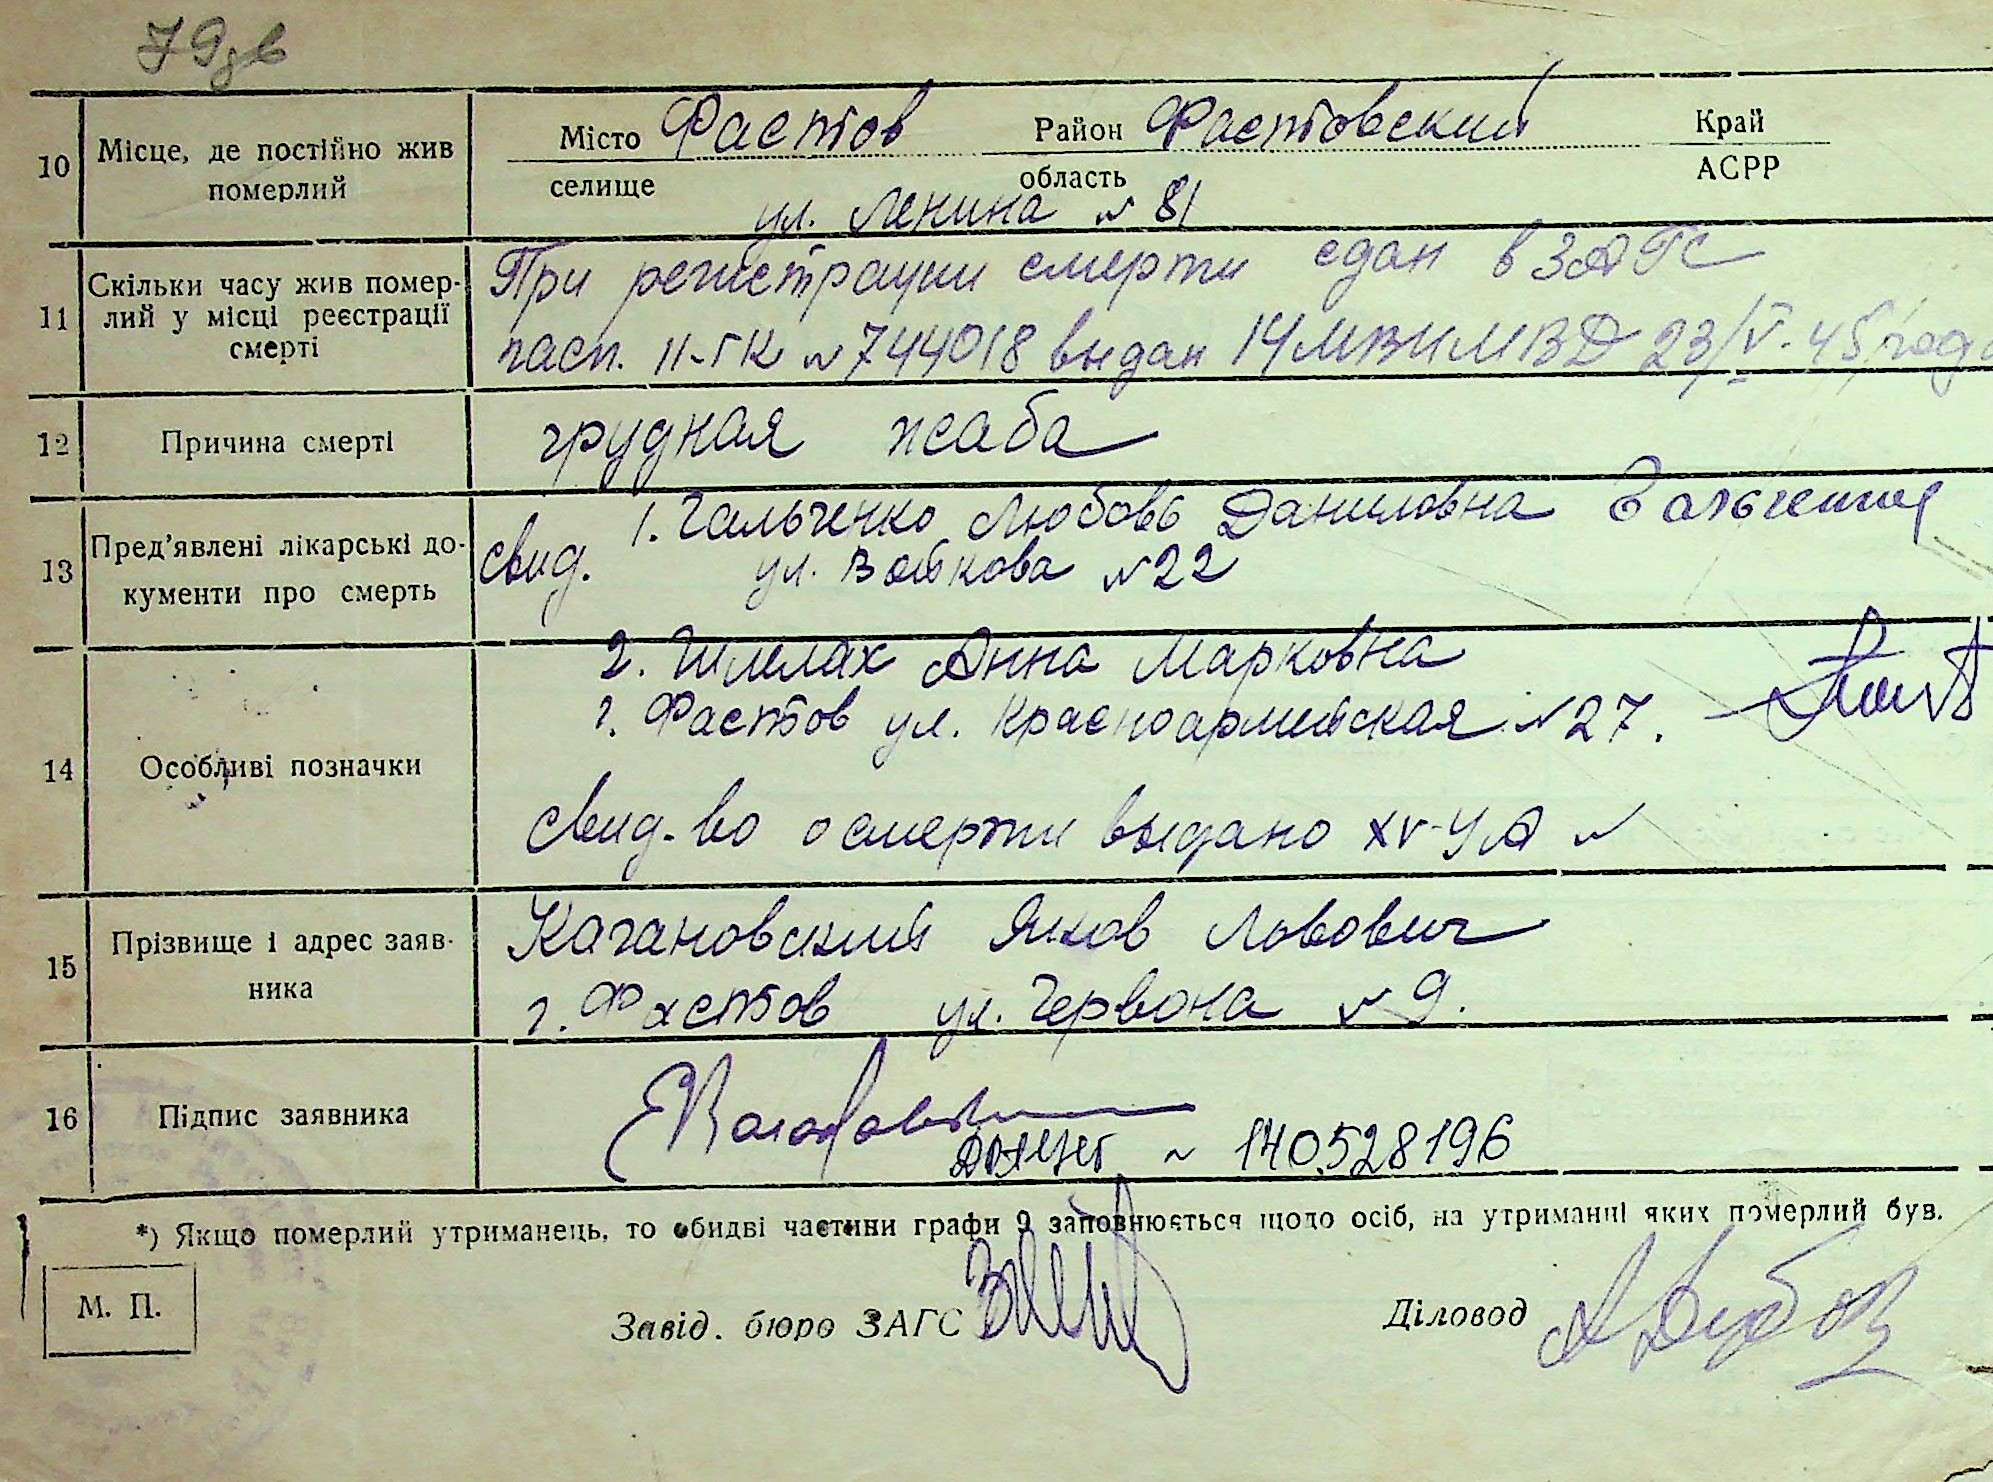 10 Місце, де постійно жив померлий
Місто Фастов Район Фастовский Край
селище область АСРР
ул. Ленина № 81
11 Скільки часу жив помер-
лий у місці реєстрації
смерті
При регистрации смерти сдан в ЗАГС
пасп. II-ГК № 744018 выдан 14 МВИМВД 23/V-45 года
12 Причина смерті
грудная жаба
13 Пред'явлені лікарські до-
кументи про смерть
свид. 1. Гальченко Любовь Даниловна Гальченко
ул. Войкова № 22
14 Особливі позначки
2. Анна Марковна
г. Фастов ул. Красноармейская № 27.
Свид-во о смерти выдано XV-УА №
15 Прізвище і адрес заяв-
ника
Кагановский Яков Львович
г. Фастов ул. Червона № 9.
16 Підпис заявника
№ 140528196
*) Якщо померлий утриманець, то обидві частини графи 9 заповнюється щодо осіб, на утриманні яких померлий був.
М. П.
Завід. бюро ЗАГС
Діловод